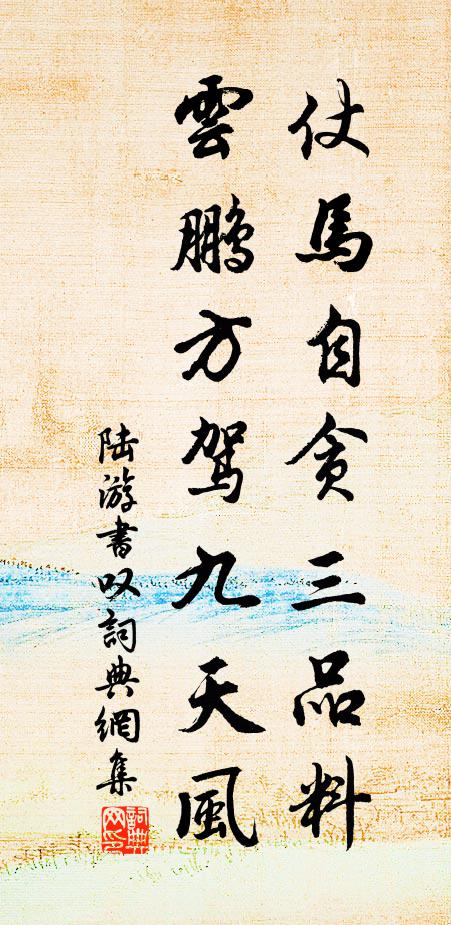 仗馬自貪三品料
雲鵬方駕九天風
陆游書叹詞典網集
詞典网印